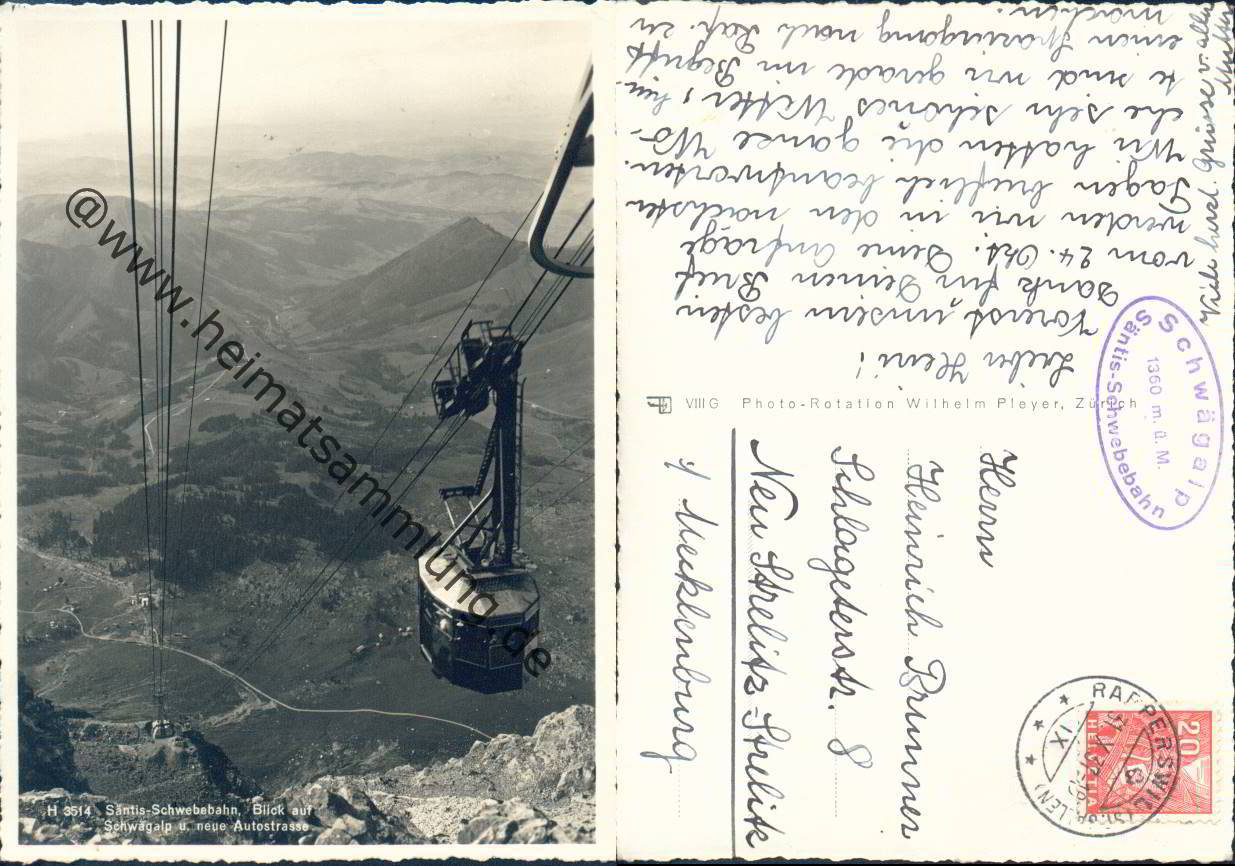 @www.heimatsammlung.de
H 3514 Säntis-Schwebebahn, Blick auf
Schwägalp u. neue Autostrasse
Lieber Heini!
Vorerst unsern besten
Dank für Deinen Brief
vom 24. Okt. Deine Anfrage
werden wir in den nächsten
Tagen brieflich beantworten.
Wir hatten die ganze Wo-
che sehr schönes Wetter, heu-
te sind wir gerade im Begriff
einen Spaziergang nach Rap. zu
machen.
Viele herzl. Grüsse v. allen
Mutter
VIII G Photo-Rotation Wilhelm Pleyer, Zürich
Schwägalp
1360 m. ü. M.
Säntis-Schwebebahn
Herrn
Heinrich Brunner
Schlageterstr. 8
Neu Strelitz-Strelitz
i/ Mecklenburg
RAPPERSWIL
XI
(ST. GALLEN)
20
HELVETIA